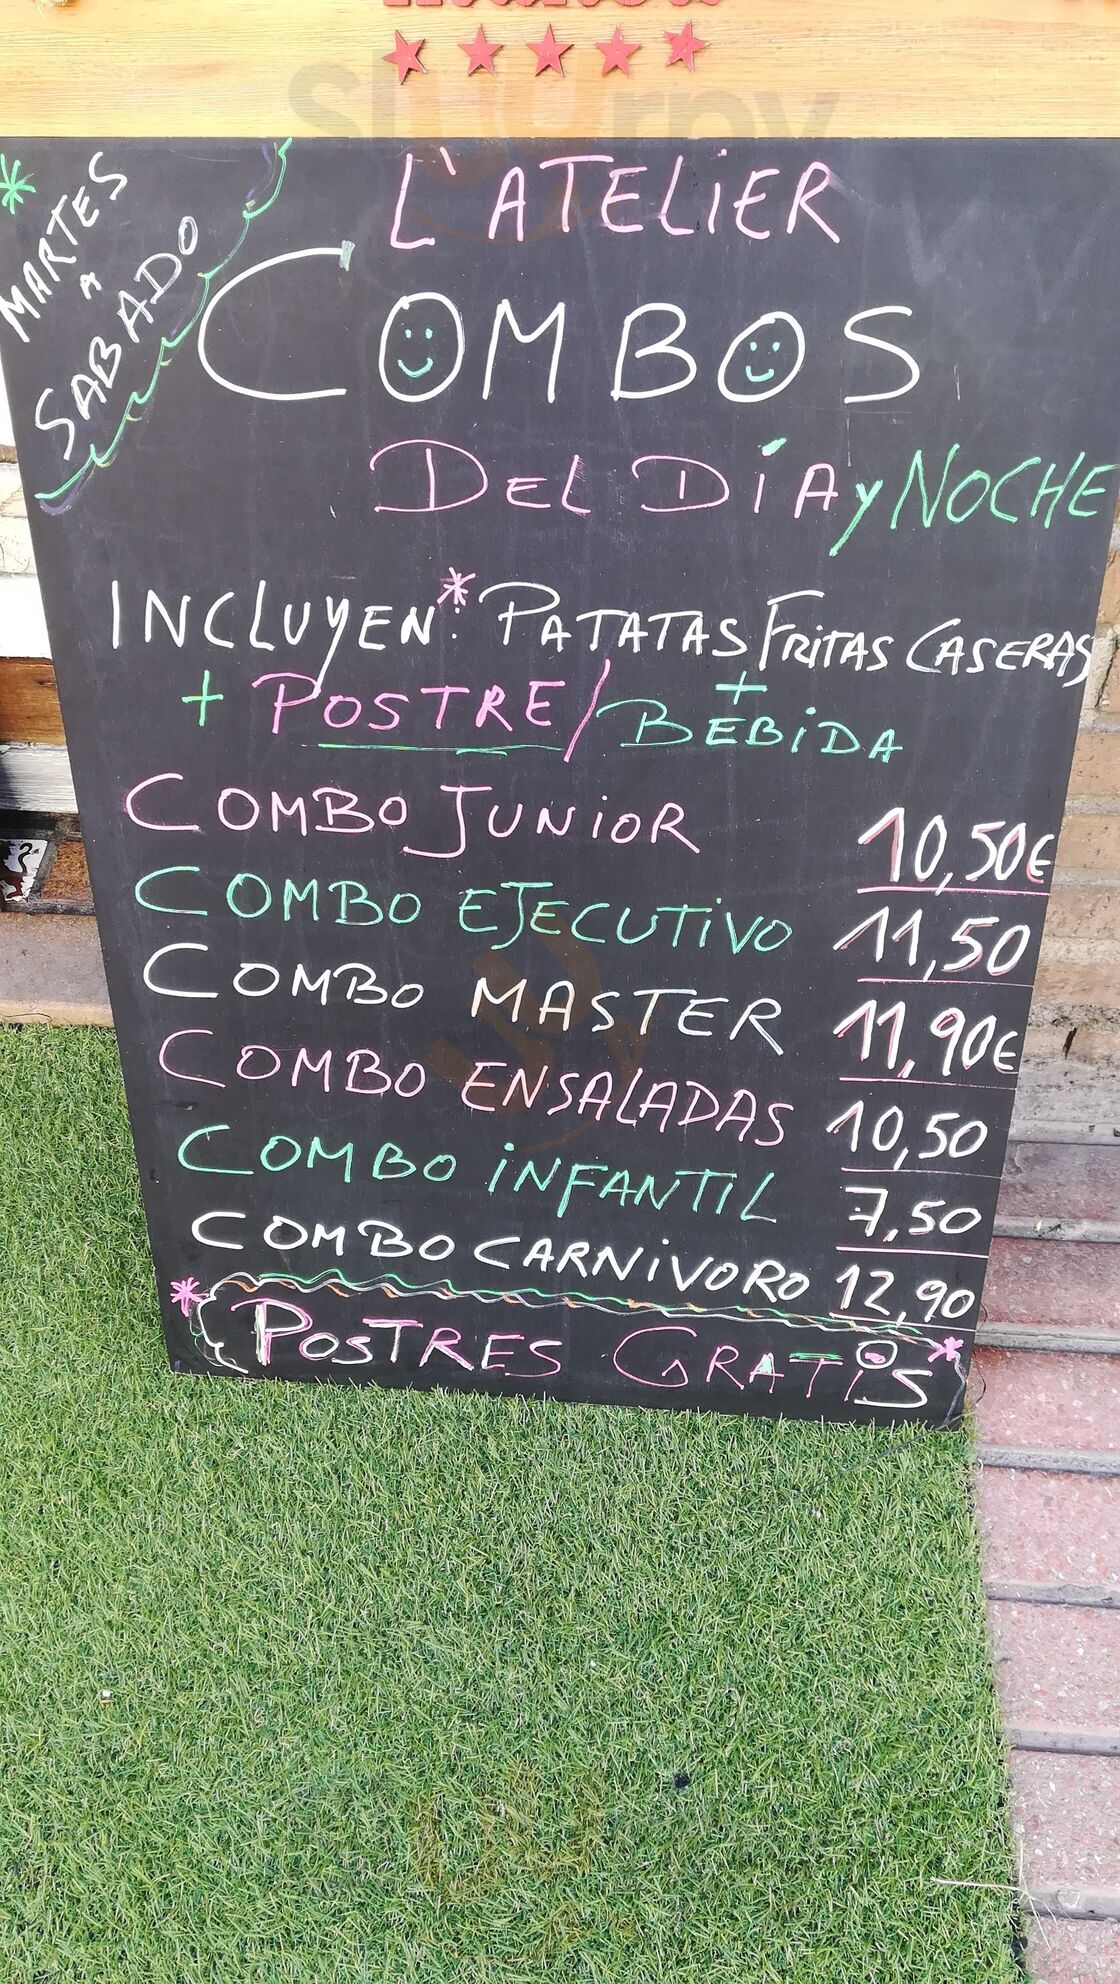 Sluurpy
* MARTES
A
SABADO
L'ATELIER
COMBOS
DEL DÍA y NOCHE
INCLUYEN*: PATATAS FRITAS CASERAS
+ POSTRE / + BEBIDA
COMBO JUNIOR 10,50€
COMBO EJECUTIVO 11,50
COMBO MASTER 11,90€
COMBO ENSALADAS 10,50
COMBO INFANTIL 7,50
COMBO CARNIVORO 12,90
* POSTRES GRATIS *